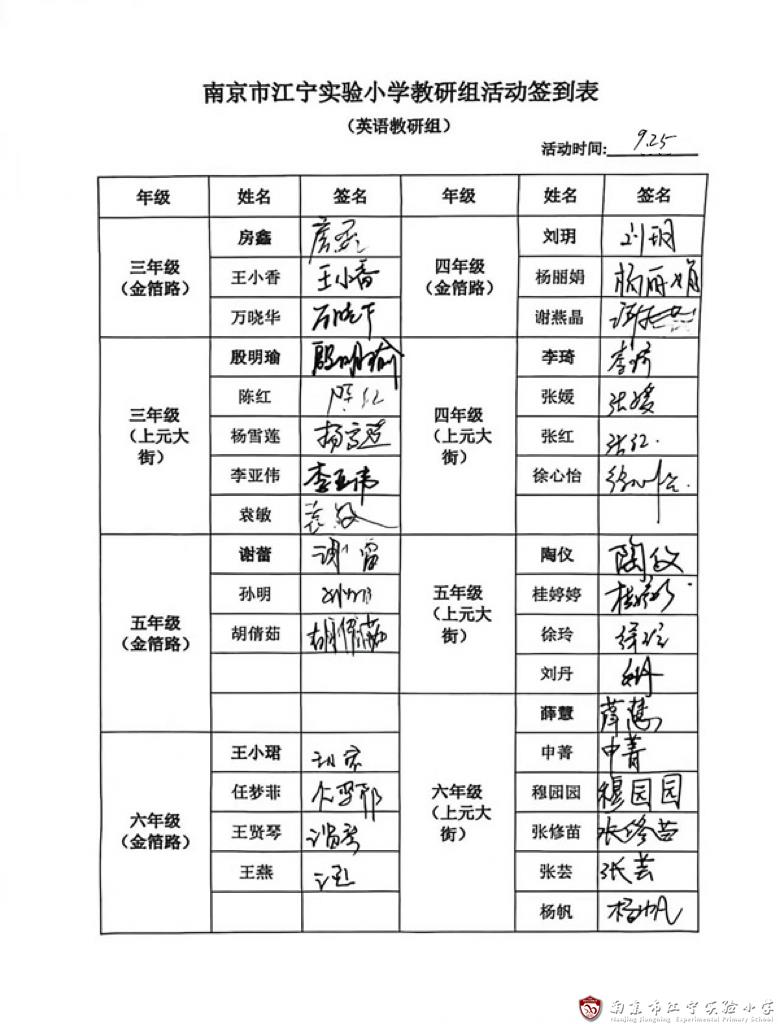 南京市江宁实验小学教研组活动签到表
（英语教研组）
活动时间: 9.25
年级 姓名 签名 年级 姓名 签名
三年级（金箔路） 房鑫 房鑫 四年级（金箔路） 刘玥 刘玥
王小香 王小香 杨丽娟 杨丽娟
万晓华 谢燕晶
三年级（上元大街） 殷明瑜 殷明瑜 四年级（上元大街） 李琦 李琦
陈红 陈红 张媛 张媛
杨雪莲 杨雪莲 张红 张红.
李亚伟 李亚伟 徐心怡 徐心怡.
袁敏 袁敏
五年级（金箔路） 谢蕾 谢蕾 五年级（上元大街） 陶仪 陶仪
孙明 孙明 桂婷婷 桂婷婷
胡倩茹 胡倩茹 徐玲 徐玲
刘丹 刘丹
六年级（上元大街） 薛慧 薛慧
六年级（金箔路） 王小珺 申菁 申菁
任梦菲 穆园园 穆园园
王贤琴 张修苗 张修苗
王燕 张芸 张芸
杨帆 杨帆
南京市江宁实验小学
Nanjing Jiangning Experimental Primary School